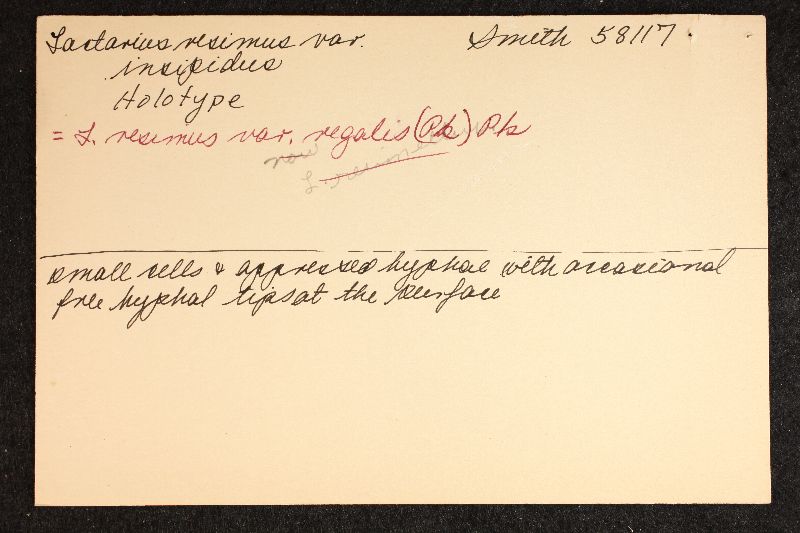 Lactarius resimus var. Smith 58117
insipidus
Holotype
= L. resimus var. regalis (Pk) Pk
now
L. resimus
small cells & appressed hyphae with occasional
free hyphal tips at the surface